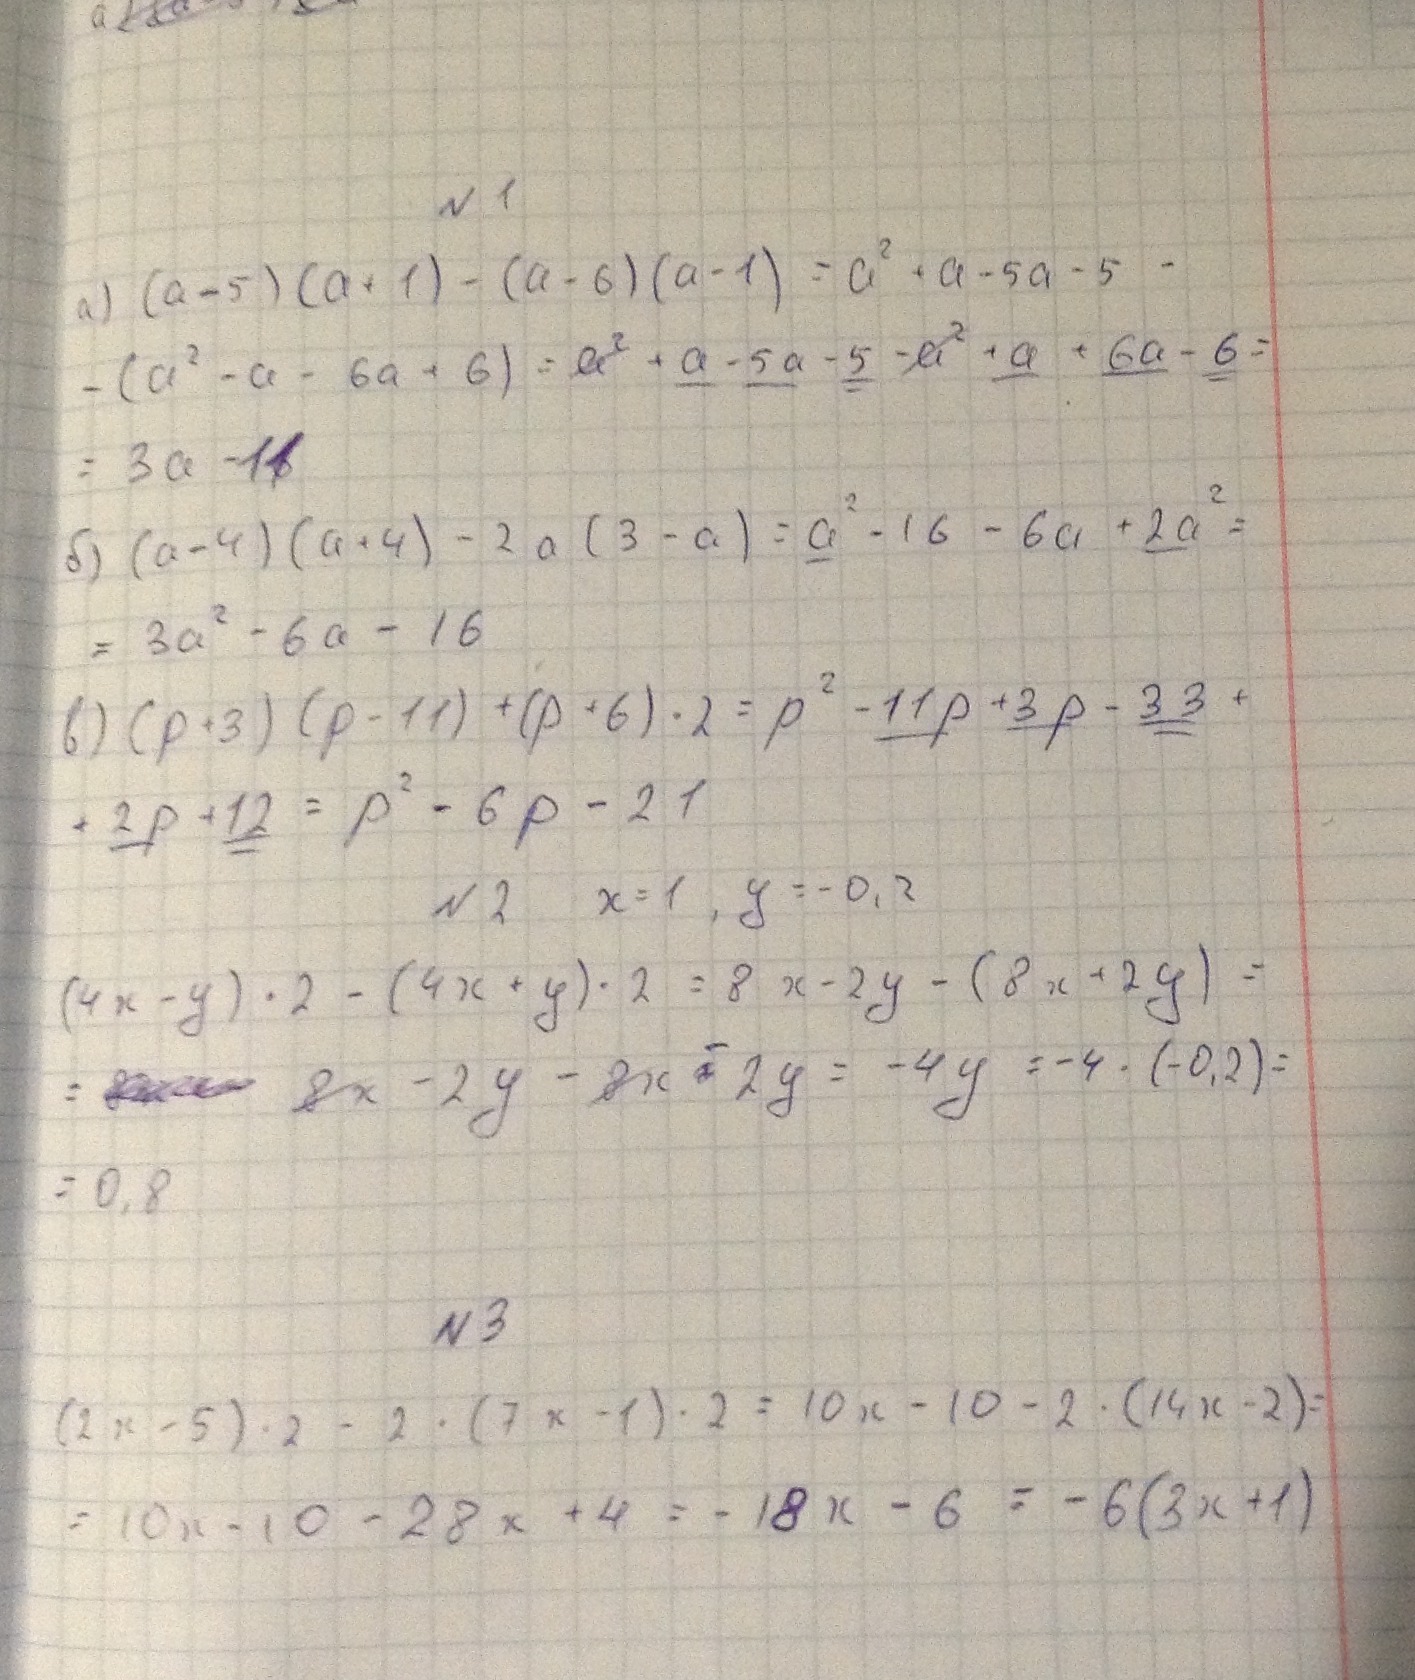 N 1
а) (a-5)(a+1) - (a-6)(a-1) = a² + a - 5a - 5 -
- (a² - a - 6a + 6) = a² + a - 5a - 5 - a² + a + 6a - 6 =
= 3a - 11
б) (a-4)(a+4) - 2a(3-a) = a² - 16 - 6a + 2a² =
= 3a² - 6a - 16
в) (p+3)(p-11) + (p+6)·2 = p² - 11p + 3p - 33 +
+ 2p + 12 = p² - 6p - 21
N 2 x=1, y=-0,2
(4x-y)·2 - (4x+y)·2 = 8x - 2y - (8x+2y) =
= 8x - 2y - 8x - 2y = -4y = -4·(-0,2) =
= 0,8
N 3
(2x-5)·2 - 2·(7x-1)·2 = 10x - 10 - 2·(14x-2) =
= 10x - 10 - 28x + 4 = -18x - 6 = -6(3x+1)